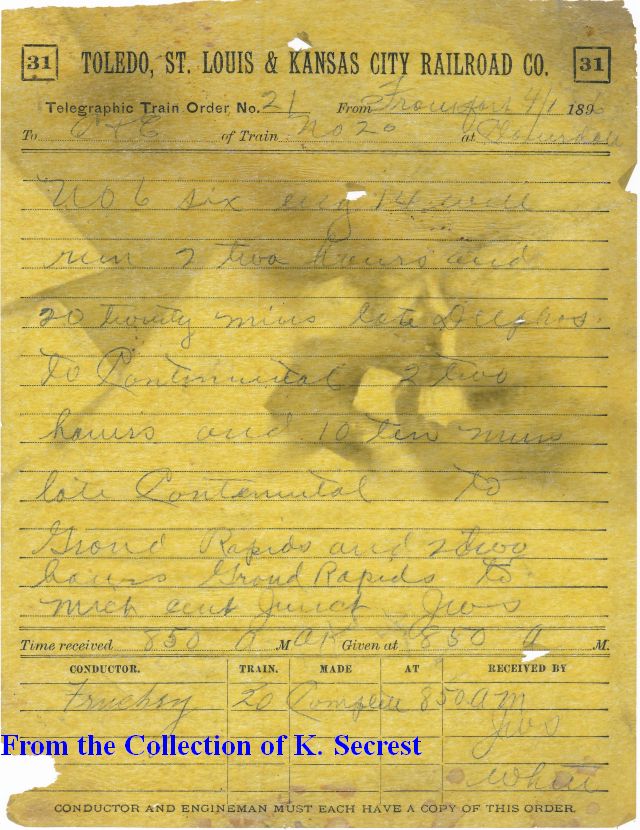 31 TOLEDO, ST. LOUIS & KANSAS CITY RAILROAD CO. 31
Telegraphic Train Order No. 21 From Frankfort 4/1 189
To C & E of Train No 20 at
No 6 six eng 14 will
run 2 two hours and
20 twenty mins late Delphos
to Continental 2 two
hours and 10 ten mins
late Continental to
Grand Rapids and 2 two
hours Grand Rapids to
Mich cent Junct JWS
Time received 850 a M OK Given at 850 a M.
CONDUCTOR. TRAIN. MADE AT RECEIVED BY
20 Complete 850 am
JWS
From the Collection of K. Secrest
White
CONDUCTOR AND ENGINEMAN MUST EACH HAVE A COPY OF THIS ORDER.